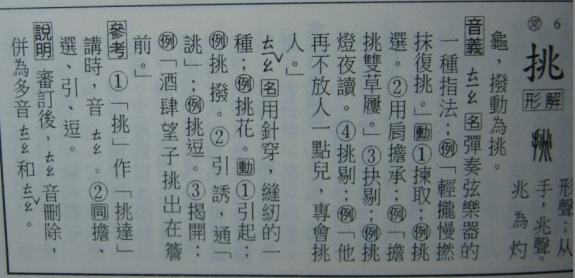 6
常
挑
形解
形聲；从
手，兆聲。
兆為灼
龜，撥動為挑。
音義 ㄊㄧㄠ 名彈奏弦樂器的
一種指法；例「輕攏慢撚
抹復挑。」動①揀取；例挑
選。②用肩擔承；例「擔
挑雙草屨。」③抉剔；例挑
燈夜讀。④挑剔；例「他
再不放人一點兒，專會挑
人。」
ㄊㄧㄠˇ 名用針穿，縫紉的一
種；例挑花。動①引起；
例挑撥。②引誘，通「
誂」；例挑逗。③揭開；
例「酒肆望子挑出在簷
前。」
參考 ①「挑」作「挑達」
講時，音ㄊㄠ。②同擔、
選、引、逗。
說明 審訂後，ㄊㄠ音刪除，
併為多音ㄊㄧㄠ和ㄊㄧㄠˇ。